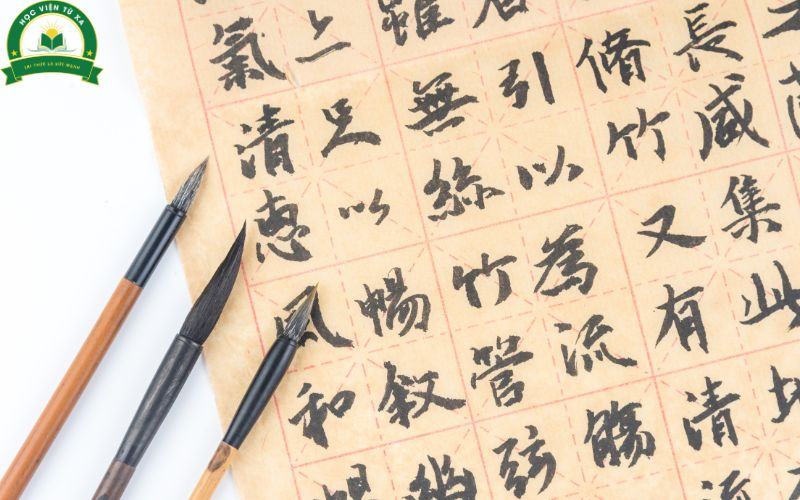 HỌC VIỆN TỪ XA
TRI THỨC LÀ SỨC MẠNH
長咸集此地
脩竹又有清流
引以為流觴
雖無絲竹管弦
足以暢敘幽
氣清惠風和暢